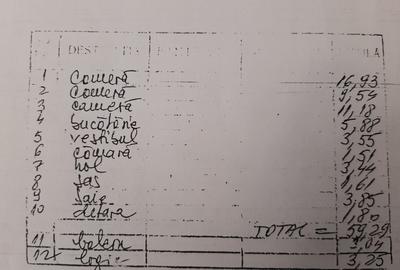 1 cameră 16,93
2 cameră 9,54
3 cameră 11,18
4 bucătărie 5,88
5 vestibul 3,55
6 cămară 1,51
7 hol 3,44
8 sas 1,61
9 3,85
10 1,80
TOTAL = 59,29
11 balcon
12 3,25